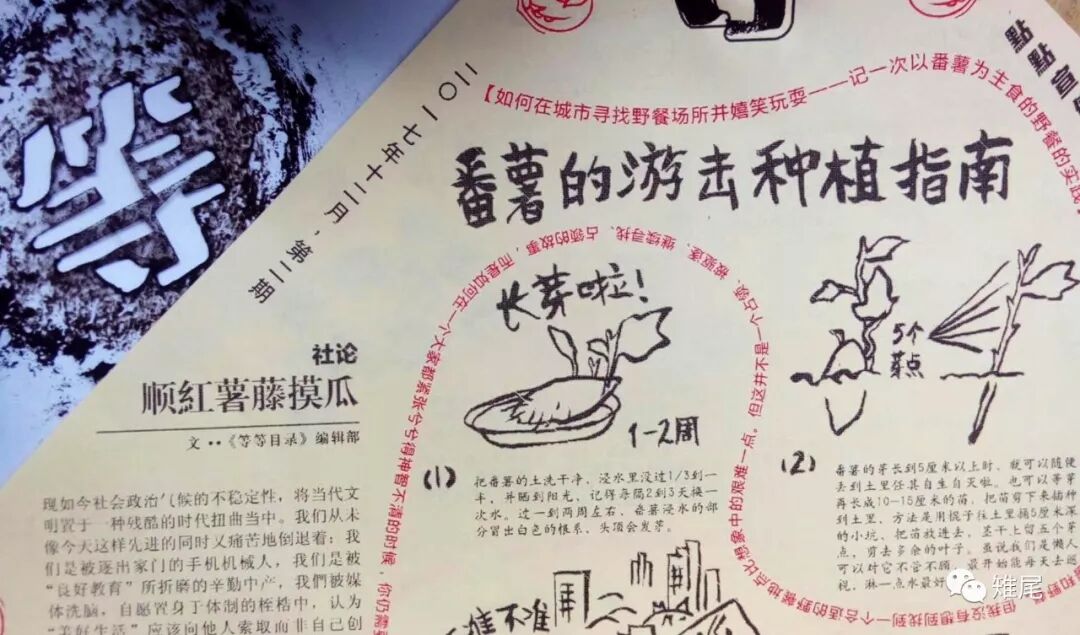 等
二〇一七年十二月,第二期
社论
顺紅薯藤摸瓜
文··《等等目录》编辑部
现如今社会政治气候的不稳定性,将当代文
明置于一种残酷的时代扭曲当中。我们从未
像今天这样先进的同时又痛苦地倒退着:我
们是被逐出家门的手机机械人,我们是被
“良好教育”所折磨的辛勤中产,我們被媒
体洗脑,自愿置身于体制的桎梏中,认为
“美好生活”应该向他人索取而非自己创
點點宣
【如何在城市寻找野餐场所并嬉笑玩耍——记一次以番薯为主食的野餐的实践
番薯的游击种植指南
但我没有想到找到一个合适的野餐地点比想象中的艰难一点。但这并不是一个占领、被驱逐、继续寻找、占领的故事,而是如何在一个大家都紧张兮兮得神智不清的时候,你仍需
长芽啦!
1-2周
(1)
把番薯的土洗干净、浸水里没过1/3到一
半,并晒到阳光、记得每隔2到3天换一
次水。过一到两周左右、番薯浸水的部
分冒出白色的根系、头顶会发芽。
5个
芽点
(2)
番薯的芽长到5厘米以上时、就可以随便
去到土里任其自生自灭啦。也可以等芽
再长成10—15厘米的苗,把苗剪下来插种
到土里、方法是用棍子往土里捅5厘米深
的小坑、把苗放进去,茎干上留五个芽
点,剪去多余的叶子。虽说我们是懒人
可以对它不管不顾,最开始能每天去巡
视,淋一点水最好
准不准
雉尾